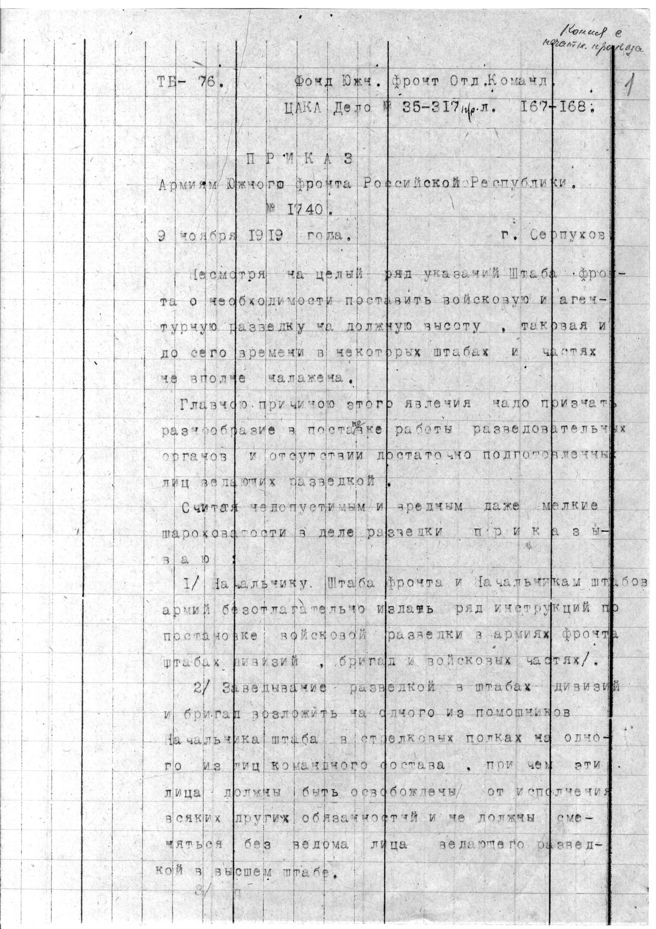 Копия с
печатн. приказа
1
ТБ- 76.   Фонд Юж. фронт Отл.Команд.
ЦАКА Дело № 35-317 пр.л. 167-168.
П Р И К А З
Армиям Южного фронта Российской Республики.
№ 1740.
9 ноября 1919 года.   г. Серпухов
Несмотря на целый ряд указаний Штаба фрон-
та о необходимости поставить войсковую и аген-
турную разведку на должную высоту , таковая и
до сего времени в некоторых штабах и частях
не вполне налажена.
Главною причиною этого явления надо признать
разнообразие в постановке работы разведовательных
органов и отсутствии достаточно подготовленных
лиц ведающих разведкой .
Считая недопустимым и вредным даже мелкие
шароховатости в деле разведки п р и к а з ы-
в а ю :
1/ Начальнику Штаба фронта и Начальникам штабов
армий безотлагательно издать ряд инструкций по
постановке войсковой разведки в армиях фронта
штабах дивизий , бригад и войсковых частях/.
2/ Заведывание разведкой в штабах дивизий
и бригад возложить на одного из помошников
Начальника штаба в стрелковых полках на одно-
го из лиц командного состава , при чем эти
лица должны быть освобождены от исполнения
всяких других обязанностчй и не должны сме-
няться без ведома лица ведающего развед-
кой в высшем штабе.
3/